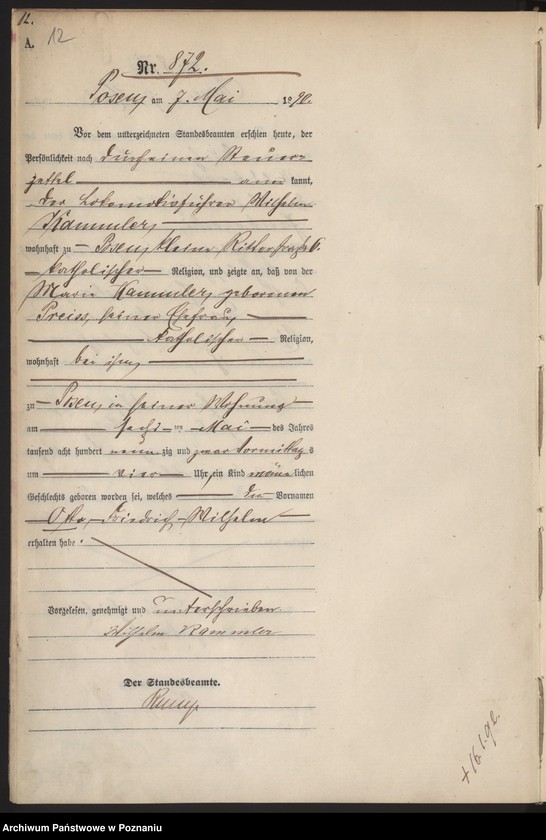 12.
A. 12
Nr. 872.
Posen am 7. Mai 1890.
Vor dem unterzeichneten Standesbeamten erschien heute, der
Persönlichkeit nach durch einen Steuer-
zettel anerkannt,
der Lokomotivführer Wilhelm
Kammler,
wohnhaft zu Posen, kleine Ritterstraße 6.
katholischer Religion, und zeigte an, daß von der
Marie Kammler, geborenen
Preiss, seiner Ehefrau,
katholischer Religion,
wohnhaft bei ihm,
zu Posen in seiner Wohnung
am sechsten Mai des Jahres
tausend acht hundert neunzig und zwar Vormittags
um vier Uhr, ein Kind männlichen
Geschlechts geboren worden sei, welches die Vornamen
Otto Friedrich Wilhelm
erhalten habe.
Vorgelesen, genehmigt und unterschrieben
Wilhelm Kammler
Der Standesbeamte.
+ 16.1.92.
Archiwum Państwowe w Poznaniu